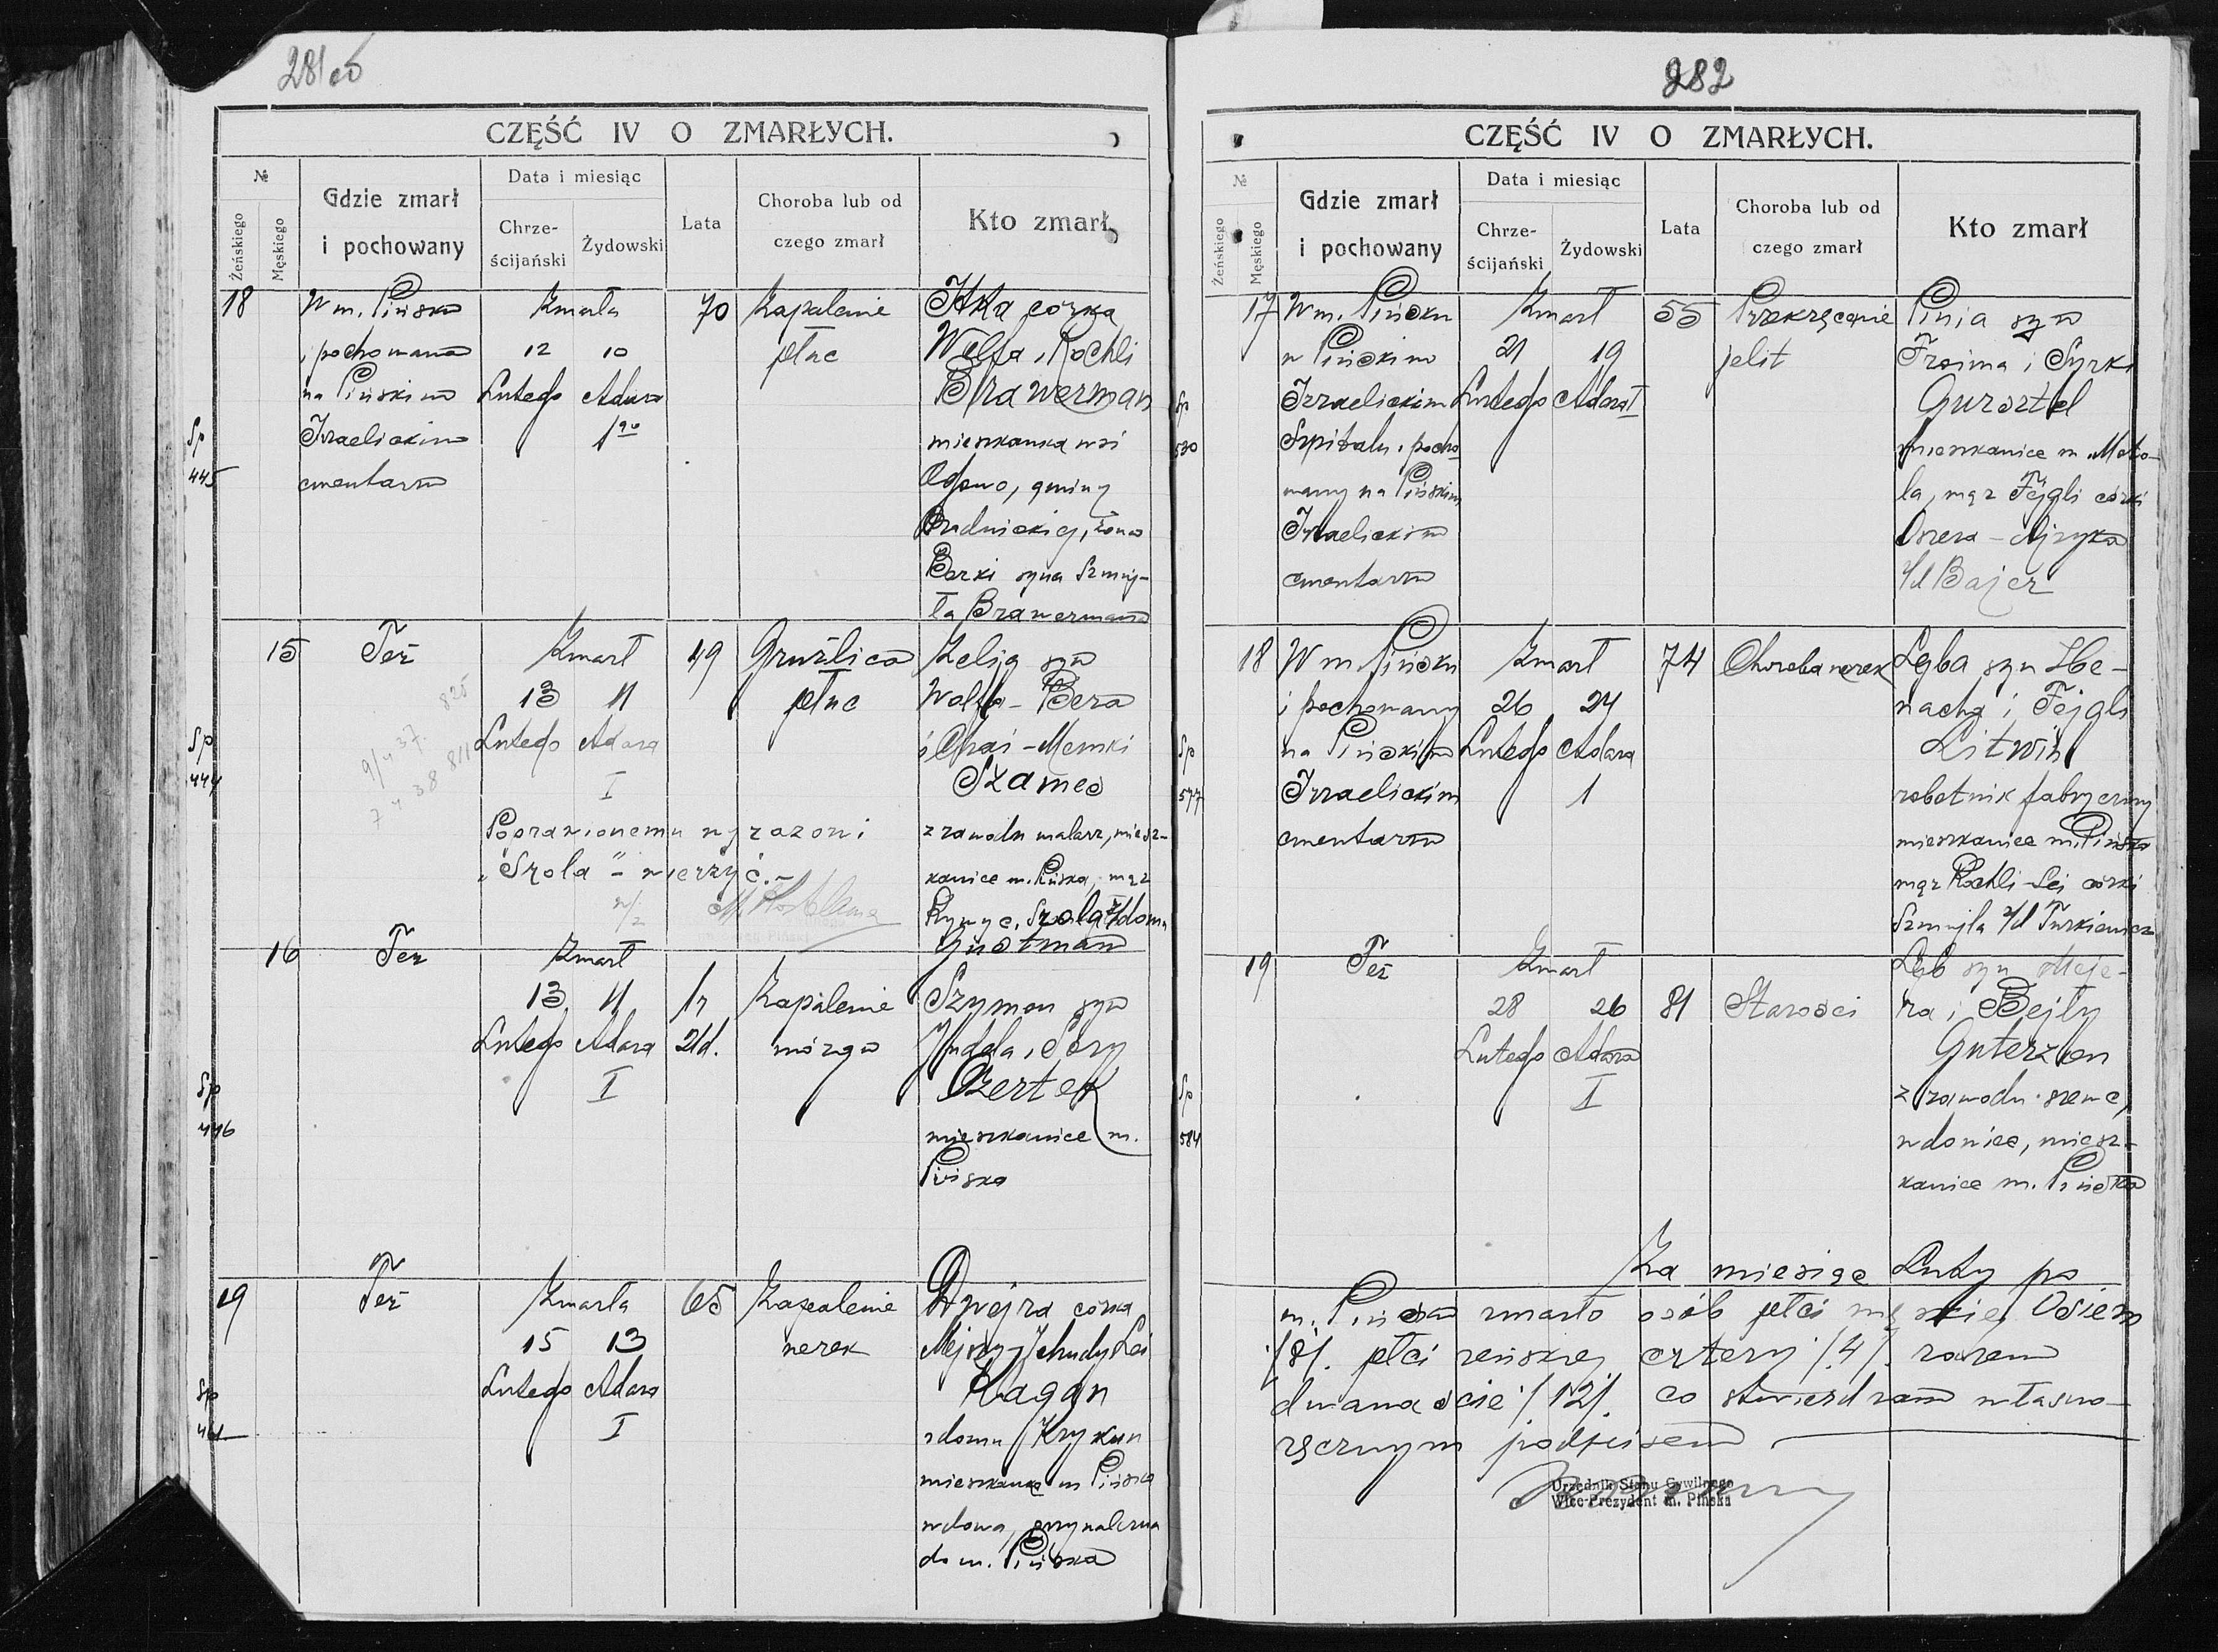 281 об
CZĘŚĆ IV O ZMARŁYCH.
№
Żeńskiego
Męskiego
Gdzie zmarł
i pochowany
Data i miesiąc
Chrze-
ścijański
Żydowski
Lata
Choroba lub od
czego zmarł
Kto zmarł
18
W m. Pińsku
i pochowana
na Pińskim
Izraelickim
cmentarzu
Zmarła
12 10
Lutego Adara
1go
70
Zapalenie
płuc
Itka córka
Wolfa i Rochli
Brawerman
mieszkanka wsi
gminy
żona
Berki syna Szmuj-
ła Brawermana
Sp
445
15
Też
Zmarł
13 11
Lutego Adara
I
49
Gruźlica
płuc
Zelig syn
Wolfa-Bera
i Chai-Memki
Szames
z zawodu malarz, miesz-
kaniec m. Pińska, mąż
Szola z domu
Gustman
Poprawionemu wyrazowi
"Szola" - wierzyć. -
Sp
444
16
Też
Zmarł
13 11
Lutego Adara
I
1 r
21 d.
Zapalenie
mózgu
Szymon syn
Judela i Sory
Czertek
mieszkaniec m.
Pińska
Sp
446
19
Też
Zmarła
15 13
Lutego Adara
I
65
Zapalenie
nerek
Dwejra córka
Mejszy-Jehudy Lei
Kagan
z domu Krykun
mieszkanka m. Pińska
wdowa, przynależna
do m. Pińska
Sp
461
282
CZĘŚĆ IV O ZMARŁYCH.
№
Żeńskiego
Męskiego
Gdzie zmarł
i pochowany
Data i miesiąc
Chrze-
ścijański
Żydowski
Lata
Choroba lub od
czego zmarł
Kto zmarł
17
W m. Pińsku
w Pińskim
Izraelickim
Szpitalu i pocho-
wany na Pińskim
Izraelickim
cmentarzu
Zmarł
21 19
Lutego Adara I
55
Przekręcenie
jelit
Pinia syn
Froima i Syrki
Gursztel
mieszkaniec m. Moto-
la, mąż Fejgli córki
Oszera-Ajzyka
z/d Bajer
Sp
530
18
W m. Pińsku
i pochowany
na Pińskim
Izraelickim
cmentarzu
Zmarł
26 24
Lutego Adara
1
74
Choroba nerek
Lejba syn He-
nacha i Fejgli
Litwin
robotnik fabryczny
mieszkaniec m. Pińska
mąż Rochli-Lei córki
Szmujła z/d Turkienicz
Sp
577
19
Też
Zmarł
28 26
Lutego Adara
I
81
Starości
Lejb syn Meje-
ra i Bejły
Guterzon
z zawodu szewc,
wdowiec, miesz-
kaniec m. Pińska
Sp
584
Za miesiąc Luty po
m. Pińsku zmarło osób płci męskiej Osiem
/8/. płci żeńskiej cztery /4/. razem
dwanaście /12/. co stwierdzam własno-
ręcznym podpisem
Urzędnik Stanu Cywilnego
Wice-Prezydent m. Pińska